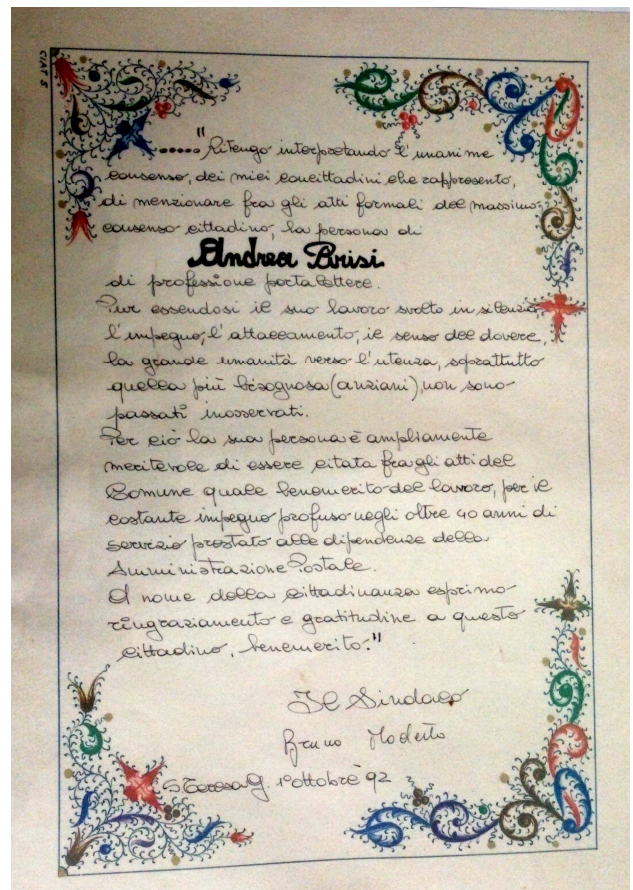 ....." Ritengo interpretando l'unanime
consenso, dei miei concittadini che rappresento,
di menzionare fra gli atti formali del massimo
consenso cittadino, la persona di
Andrea Brisi
di professione portalettere.
Pur essendosi il suo lavoro svolto in silenzio
l'impegno, l'attaccamento, il senso del dovere,
la grande umanità verso l'utenza, soprattutto
quella più bisognosa (anziani), non sono
passati inosservati.
Per ciò la sua persona è ampliamente
meritevole di essere citata fra gli atti del
Comune quale benemerito del lavoro, per il
costante impegno profuso negli oltre 40 anni di
servizio prestato alle dipendenze della
Amministrazione Postale.
A nome della cittadinanza esprimo
ringraziamento e gratitudine a questo
cittadino, benemerito."
Il Sindaco
Bruno Modesto
S Teresa G. 1° ottobre 92